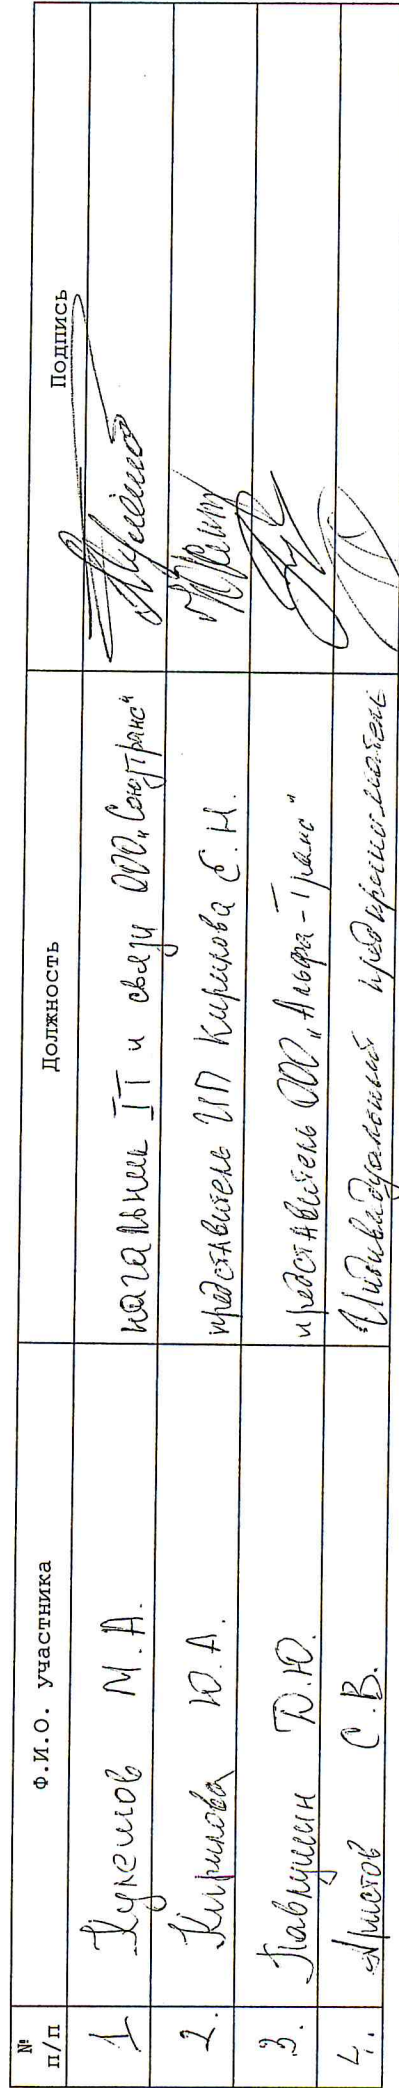 № п/п Ф.И.О. участника Должность Подпись
1 М.А. начальник IT и связи ООО „Союзтранс"
2. Кирикова Ю.А. представитель ИП Кирикова С.Н.
3. Лаврушин Д.Ю. представитель ООО „Альфа-Транс"
4. Аристов С.В. Индивидуальный предприниматель